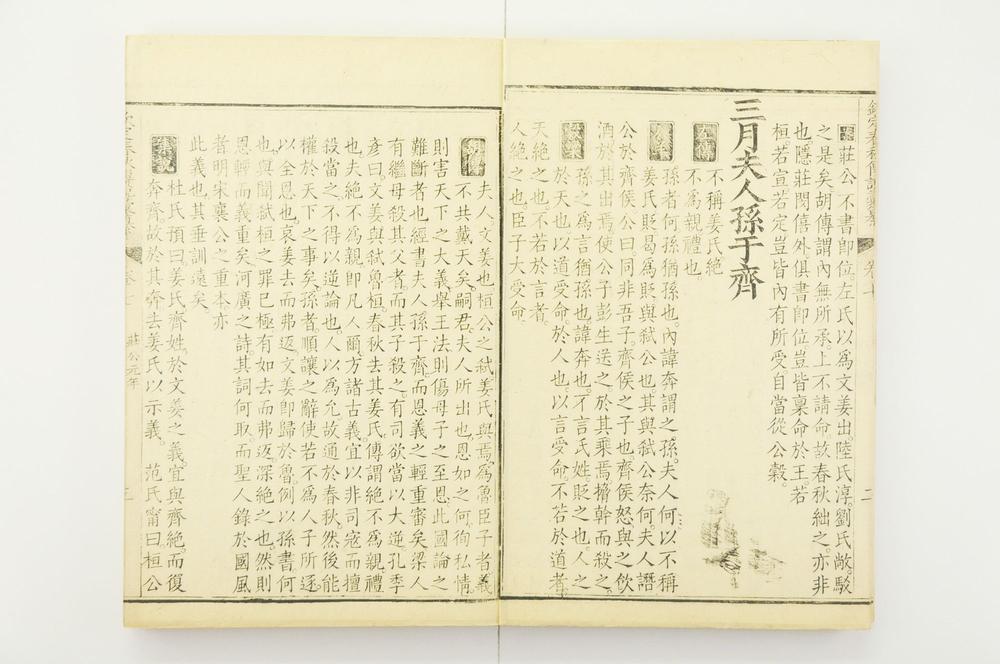 案莊公不書即位左氏以爲文姜出陸氏淳劉氏敞駁
之是矣胡傳謂內無所承上不請命故春秋絀之亦非
也隱莊閔僖外俱書即位豈皆稟命於王若
桓若宣若定豈皆內有所受自當從公穀
三月夫人孫于齊
左傳
不稱姜氏絕
不爲親禮也
公羊
孫者何孫猶孫也內諱奔謂之孫夫人何以不稱
姜氏貶曷爲貶與弒公也其與弒公奈何夫人譖
公於齊侯公曰同非吾子齊侯之子也齊侯怒與之飲
酒於其出焉使公子彭生送之於其乘焉搚幹而殺之
穀梁
孫之爲言猶孫也諱奔也不言氏姓貶之也人之
於天也以道受命於人也以言受命不若於道者
天絕之也不若於言者
人絕之也臣子大受命
胡傳
夫人文姜也桓公之弒姜氏與焉爲魯臣子者義
不共戴天矣嗣君夫人所出也恩如之何徇私情
則害天下之大義舉王法則傷母子之至恩此國論之
難斷者也經書夫人孫于齊而恩義之輕重審矣梁人
有繼母殺其父者而其子殺之有司欲當以大逆孔季
彥曰文姜與弒魯桓春秋去其姜氏傳謂絕不爲親禮
也夫絕不爲親即凡人爾方諸古義宜以非司寇而擅
殺當之不得以逆論也人以爲允故通於春秋然後能
權於天下之事矣孫者順讓之辭使若不爲人子所逐
以全恩也哀姜去而弗返文姜即歸於魯例以孫書何
也與聞弒桓之罪已極有如去而弗返深絕之也然則
恩輕而義重矣河廣之詩其詞何取而聖人錄於國風
者明宋襄公之重本亦
此義也其垂訓遠矣
集說
杜氏預曰姜氏齊姓於文姜之義宜與齊絕而復
奔齊故於其奔去姜氏以示義 范氏甯曰桓公
卷七
莊公元年
二
三